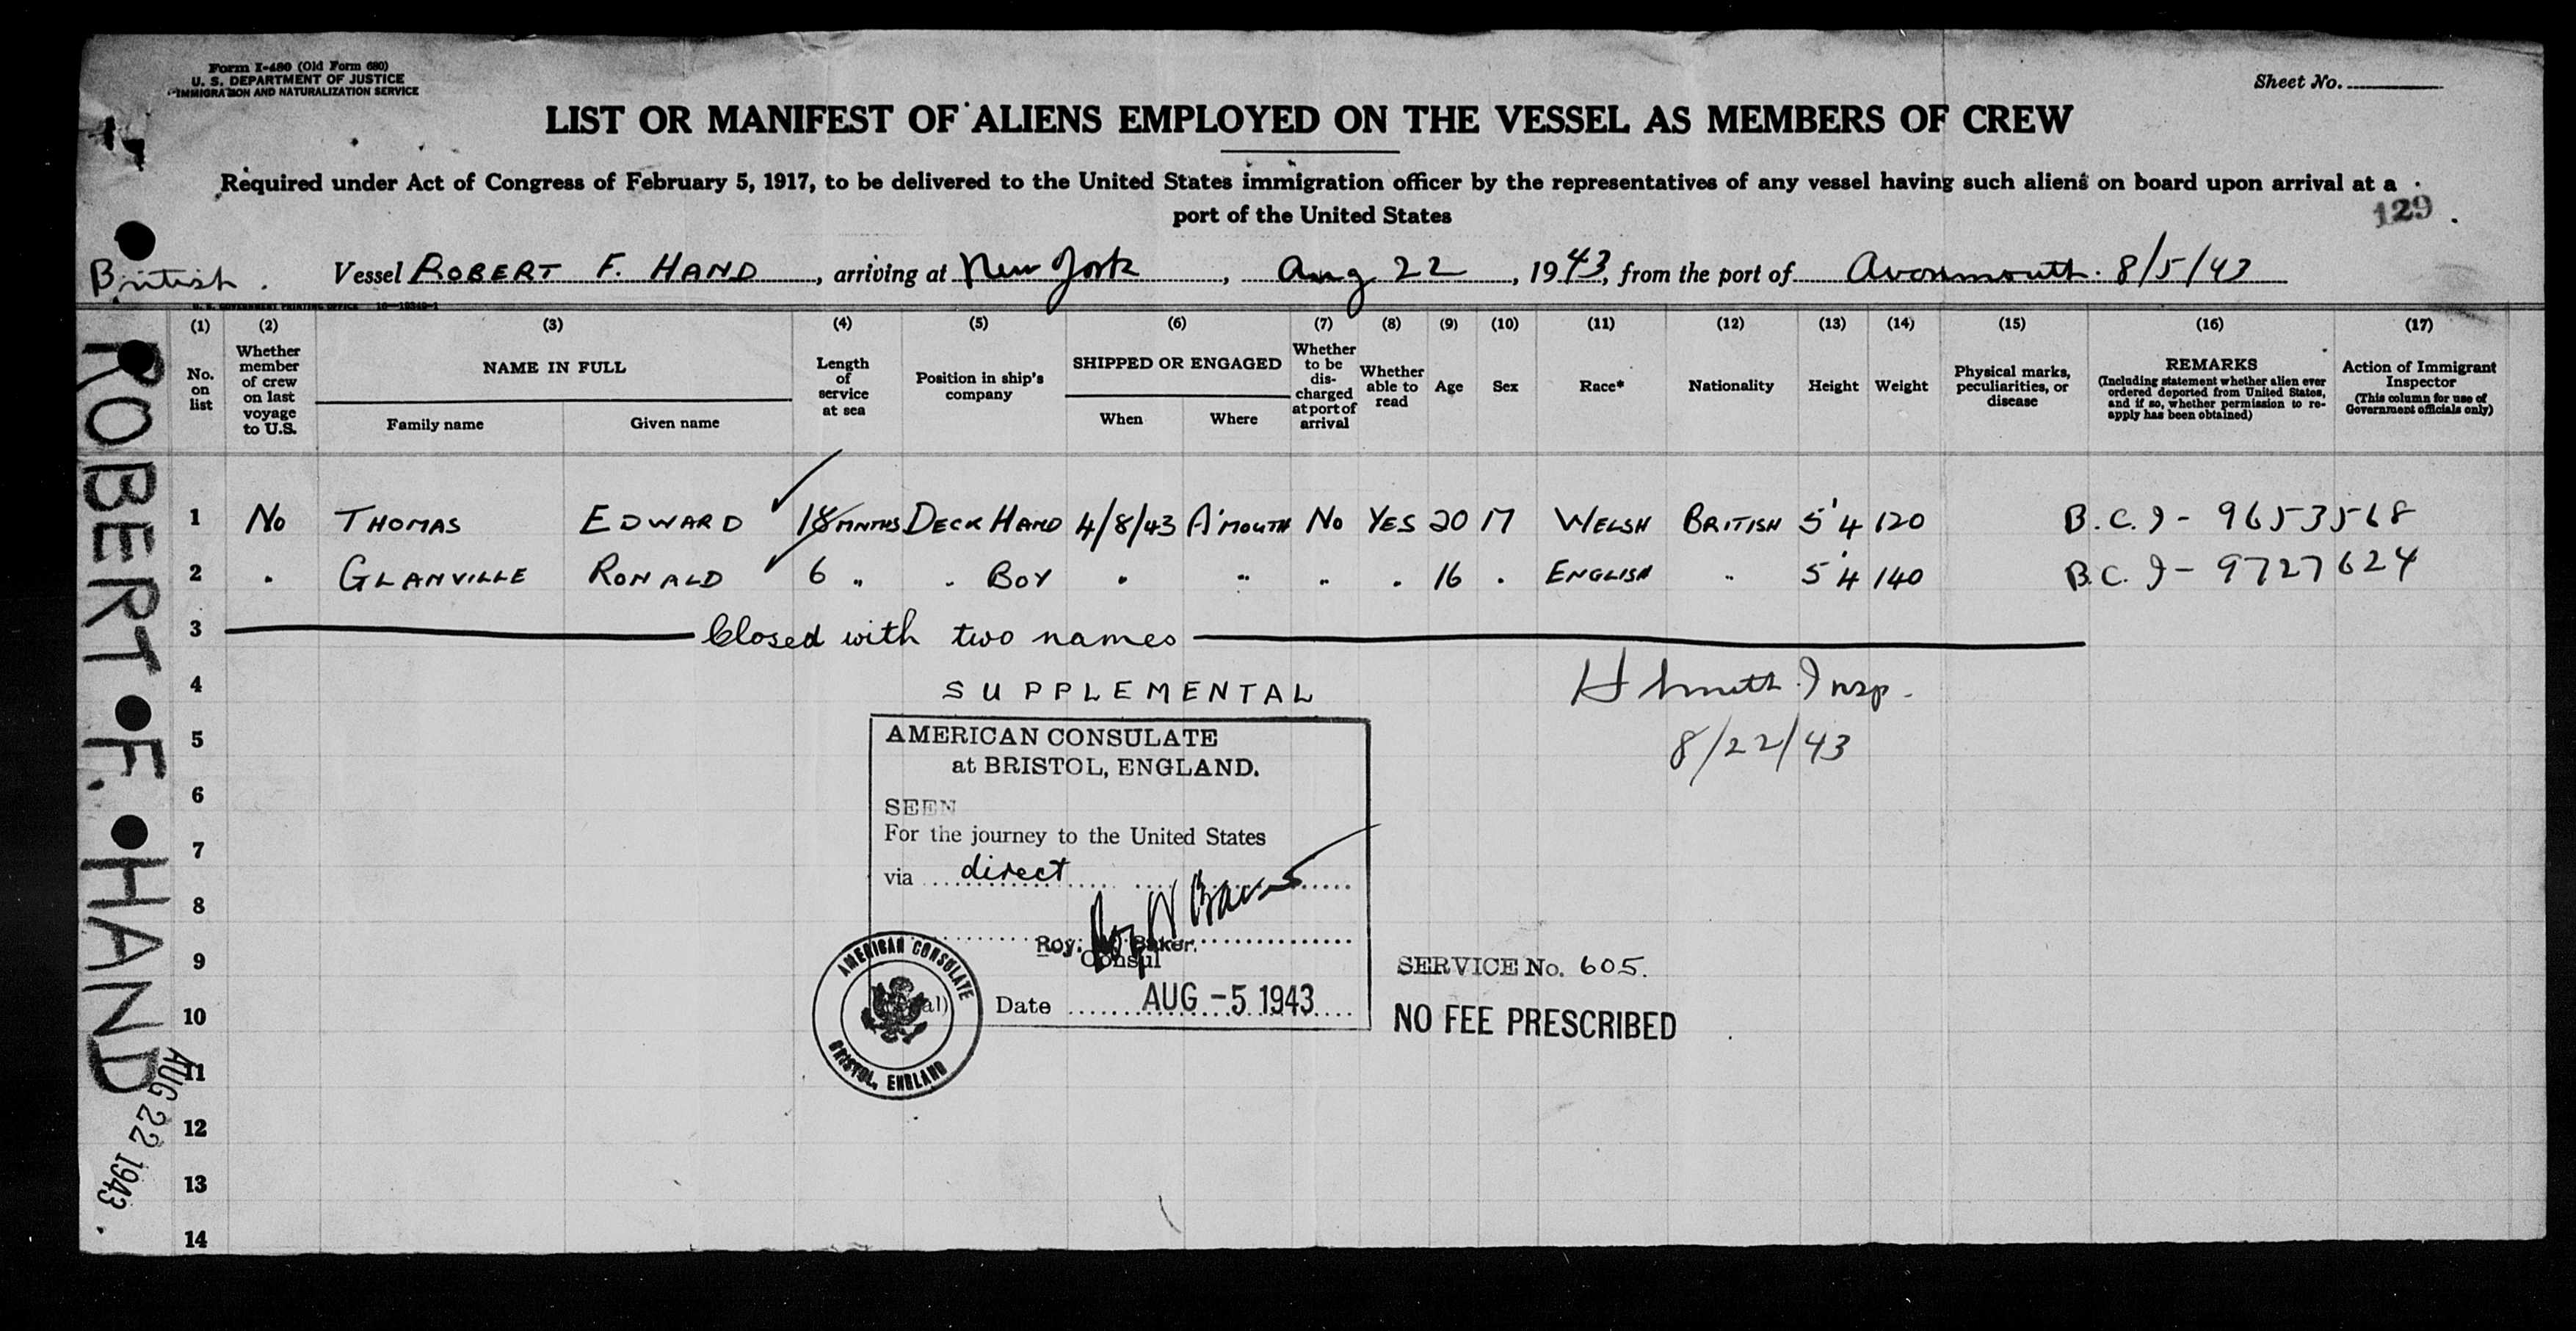 Form I-480 (Old Form 680)
U. S. DEPARTMENT OF JUSTICE
IMMIGRATION AND NATURALIZATION SERVICE
Sheet No.
LIST OR MANIFEST OF ALIENS EMPLOYED ON THE VESSEL AS MEMBERS OF CREW
Required under Act of Congress of February 5, 1917, to be delivered to the United States immigration officer by the representatives of any vessel having such aliens on board upon arrival at a
port of the United States
129
British. Vessel ROBERT F. HAND, arriving at New York, Aug 22, 1943, from the port of Avonmouth. 8/5/43
U. S. GOVERNMENT PRINTING OFFICE
(1) (2) (3) (4) (5) (6) (7) (8) (9) (10) (11) (12) (13) (14) (15) (16) (17)
No. on list
Whether member of crew on last voyage to U.S.
NAME IN FULL
Family name
Given name
Length of service at sea
Position in ship's company
SHIPPED OR ENGAGED
When
Where
Whether to be discharged at port of arrival
Whether able to read
Age
Sex
Race*
Nationality
Height
Weight
Physical marks, peculiarities, or disease
REMARKS
(Including statement whether alien ever ordered deported from United States, and if so, whether permission to re-apply has been obtained)
Action of Immigrant Inspector
(This column for use of Government officials only)
1 No THOMAS EDWARD 18 MNTHS DECK HAND 4/8/43 A'MOUTH NO YES 20 M WELSH BRITISH 5'4 120 B.C.I - 9653568
2 " GLANVILLE RONALD 6 " " BOY " " " " 16 " ENGLISH " 5'4 140 B.C.I - 9727624
3 Closed with two names
4 SUPPLEMENTAL H Smith Insp.
5 AMERICAN CONSULATE
at BRISTOL, ENGLAND.
8/22/43
6 SEEN
For the journey to the United States
7 via direct
8
Roy. W. Baker.
Consul
9 SERVICE No. 605.
10 Date AUG -5 1943
NO FEE PRESCRIBED
AMERICAN CONSULATE
BRISTOL, ENGLAND
11
12
13
14
ROBERT F. HAND
AUG 22 1943.